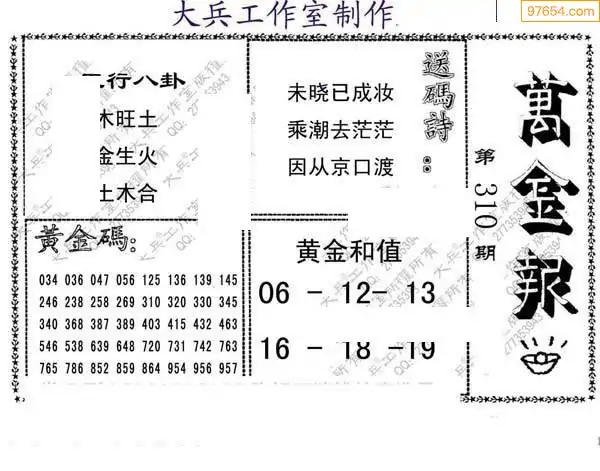 大兵工作室制作
97654.com
行八卦
木旺土
金生火
土木合
送碼詩:
未晓已成妆
乘潮去茫茫
因从京口渡
萬金報
第310期
黃金碼:
034 036 047 056 125 136 139 145
246 238 258 269 310 320 330 345
340 368 387 389 403 415 432 463
546 538 639 648 720 731 742 763
765 786 852 859 864 954 956 957
黄金和值
06 - 12- 13
16 - 18 -19